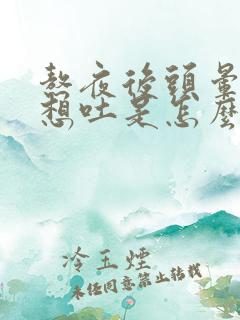 熬夜後頭暈
想吐是怎麼
冷玉煙
未经同意禁止转载